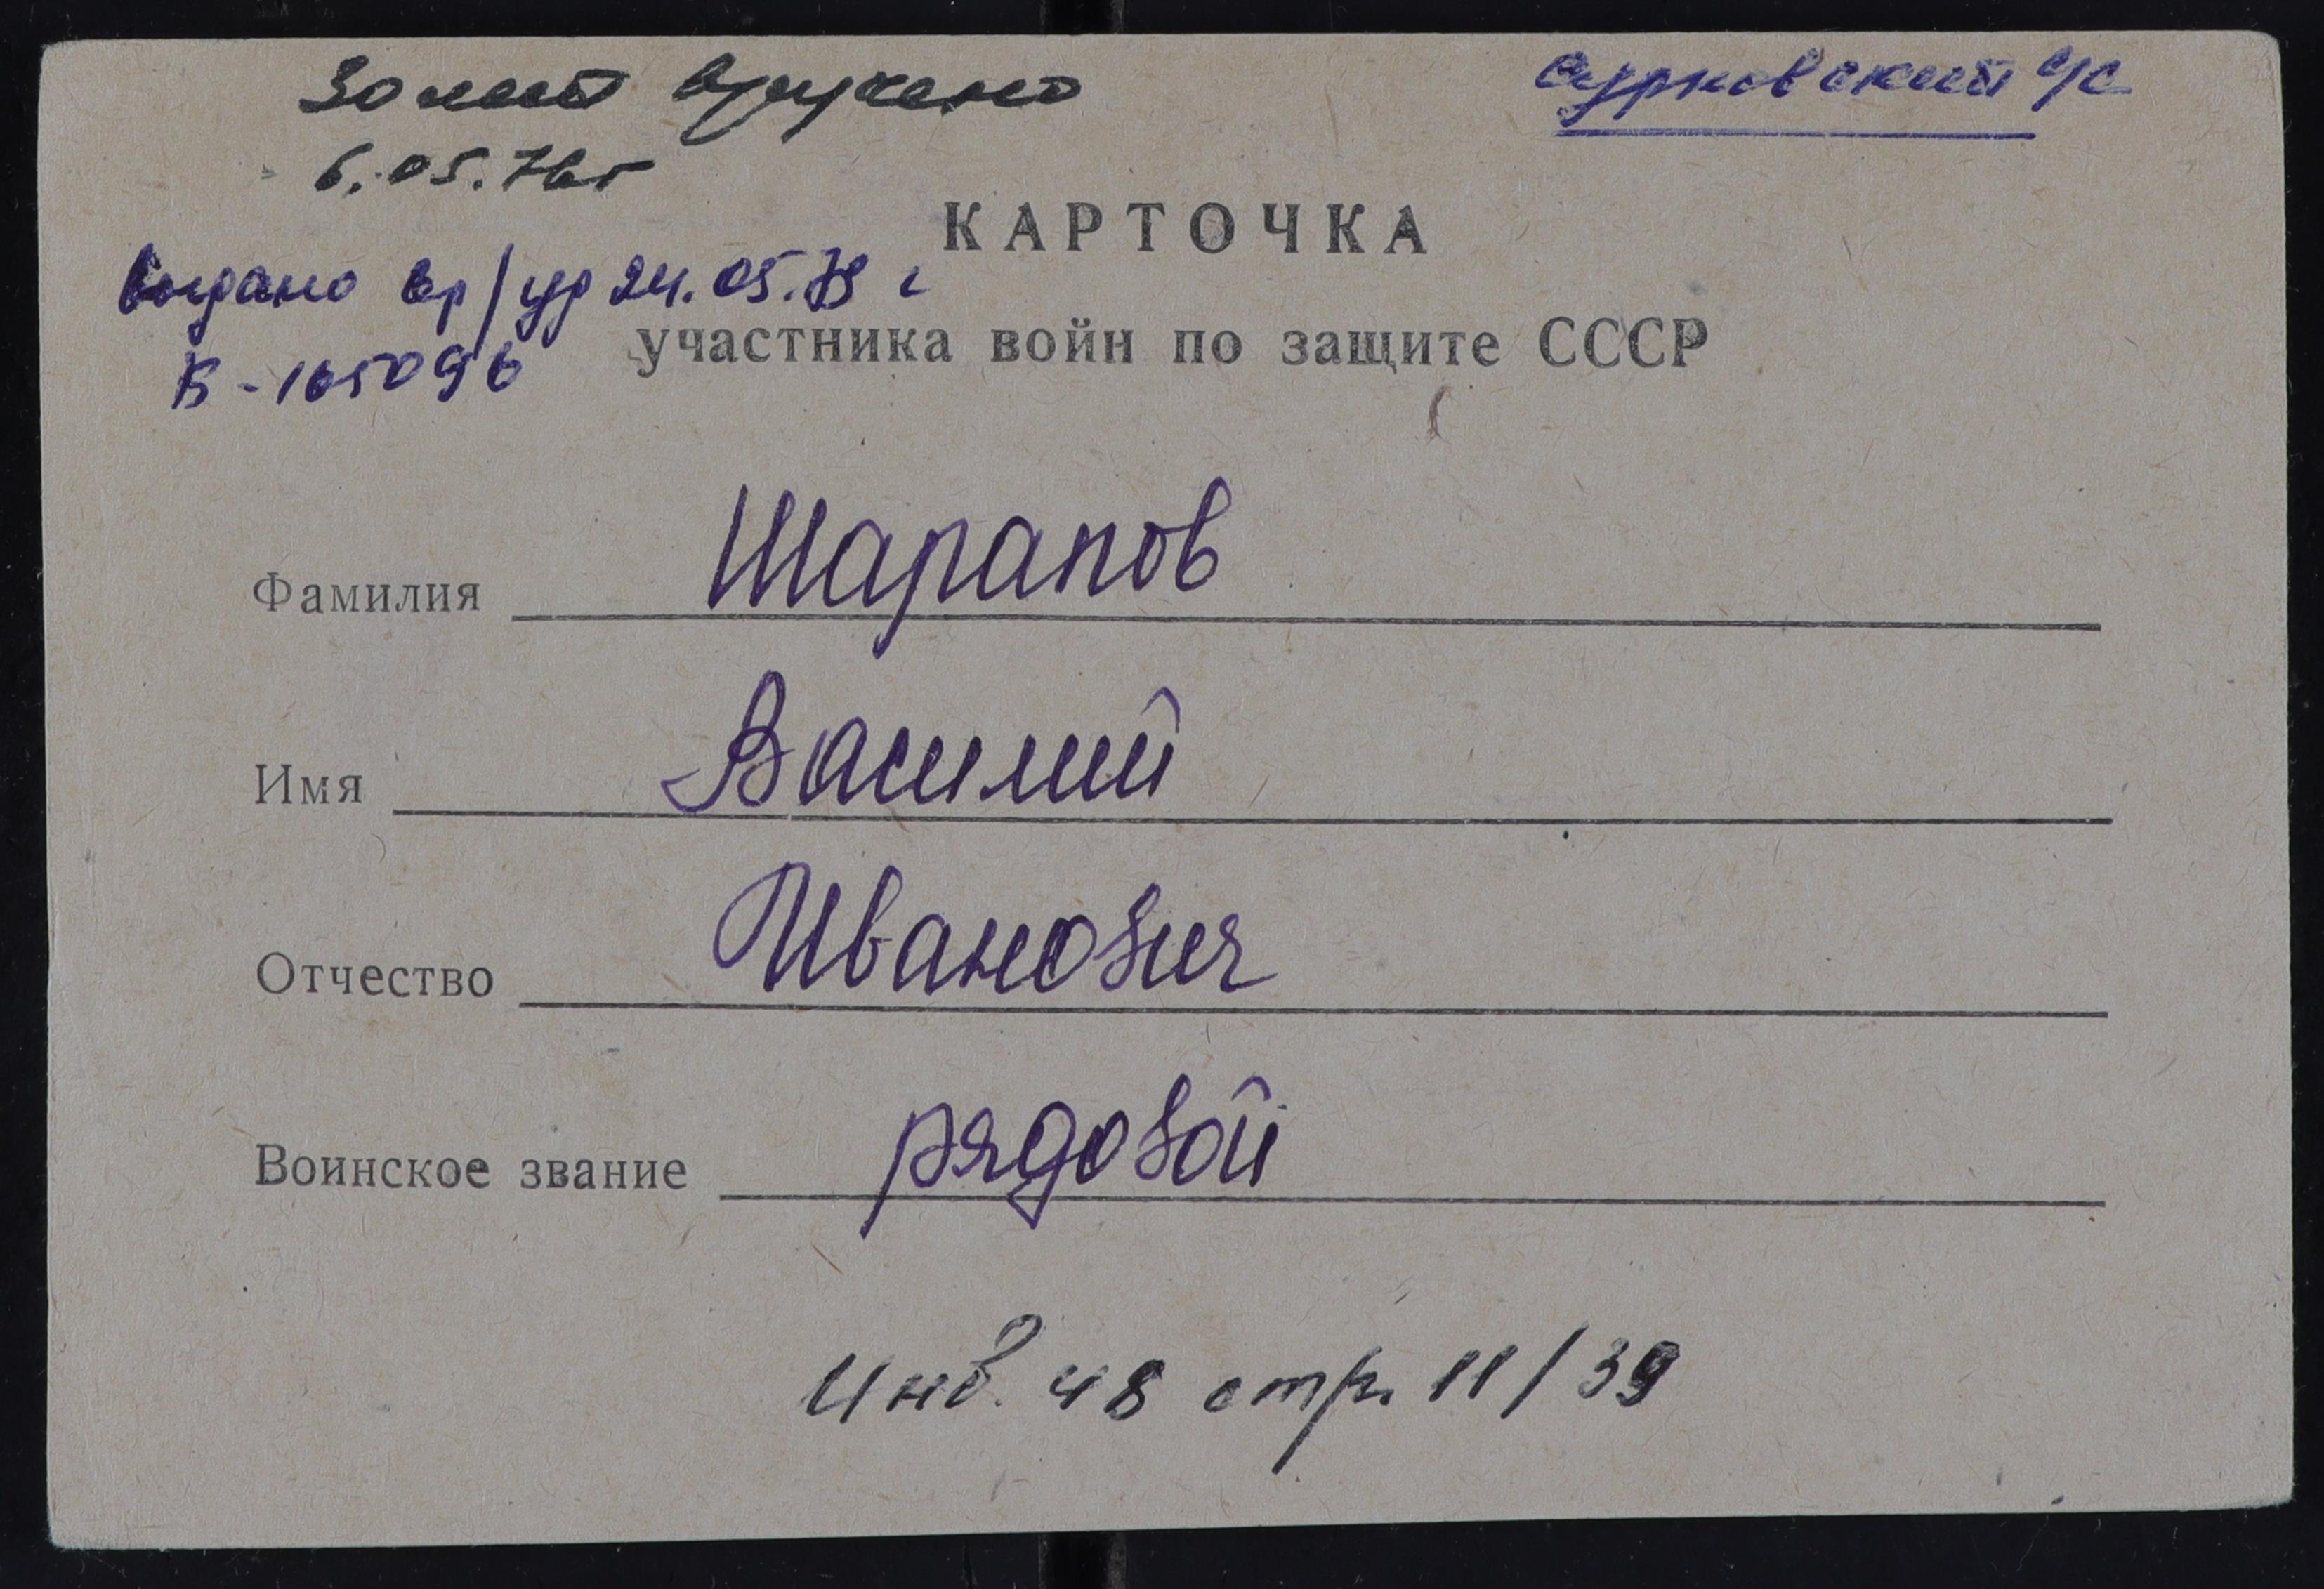 30 лет вручено
6.05.76г
Сурковский с/с
КАРТОЧКА
выдано вр/уд 24.05.79 г
участника войн по защите СССР
Б-165096
Фамилия Шарапов
Имя Василий
Отчество Иванович
Воинское звание рядовой
Инв. 48 стр. 11/39